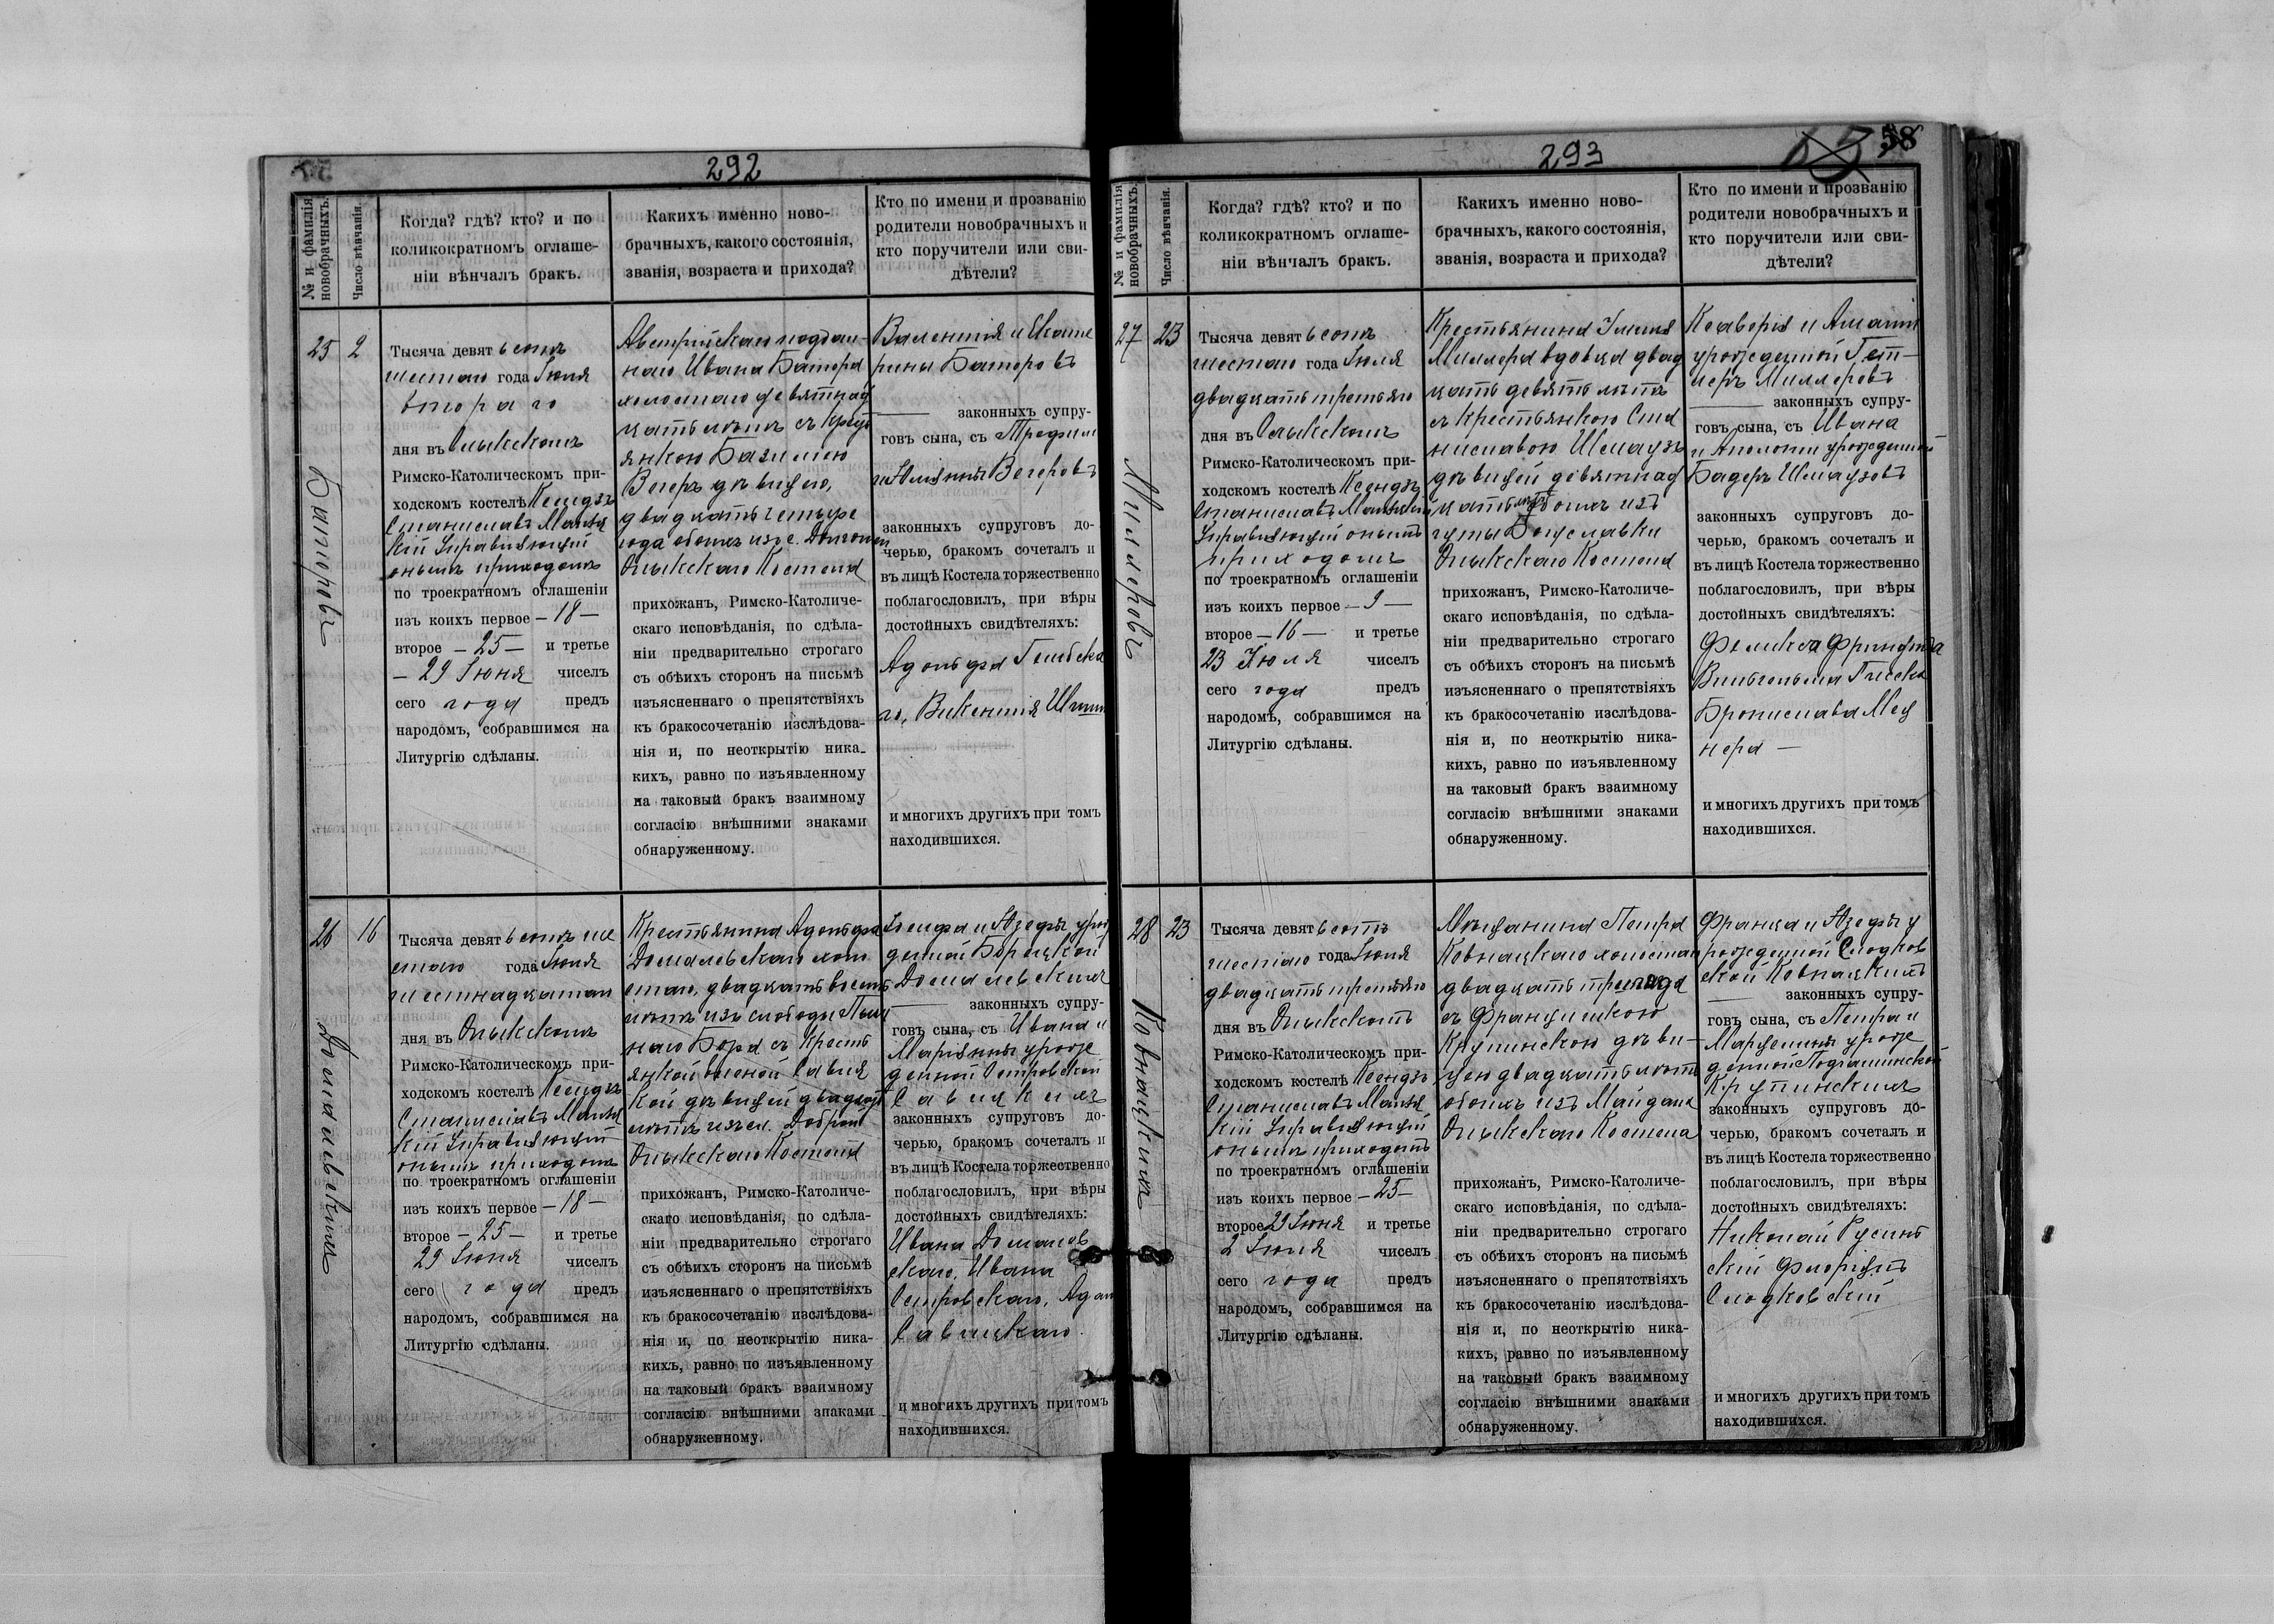 292
№ и фамилія новобрачныхъ.
Число вѣнчанія.
Когда? гдѣ? кто? и по
коликократномъ оглаше-
ніи вѣнчалъ бракъ.
Какихъ именно ново-
брачныхъ, какого состоянія,
званія, возраста и прихода?
Кто по имени и прозванію
родители новобрачныхъ и
кто поручители или сви-
дѣтели?
25
2
Баторовъ
Тысяча девятьсотъ
шестаго года Іюля
втораго
дня въ Олыкскомъ
Римско-Католическомъ при-
ходскомъ костелѣ Ксендзъ
Станиславъ
кій Управляющій
онымъ приходомъ
по троекратномъ оглашеніи
изъ коихъ первое — 18 —
второе — 25 — и третье
— 29 Іюня чиселъ
сего года предъ
народомъ, собравшимся на
Литургію сдѣланы.
Австрійскаго поддан-
наго Ивана Батора
холостаго девятнад
цать лѣтъ съ Крест
янкою
Вегеръ дѣвицею,
двадцать четыре
года обоихъ изъ с.
Олыкскаго Костела
прихожан, Римско-Католиче-
скаго исповѣданія, по сдѣла-
ніи предварительно строгаго
съ обѣихъ сторонъ на письмѣ
изъясненнаго о препятствіяхъ
къ бракосочетанію изслѣдова-
нія и, по неоткрытію ника-
кихъ, равно по изъявленному
на таковый бракъ взаимному
согласію внѣшними знаками
обнаруженному.
Валентія и Екате
рины Баторовъ
законныхъ супру-
говъ сына, съ
и Юліянны Вегеровъ
законныхъ супруговъ до-
черью, бракомъ сочеталъ и
въ лицѣ Костела торжественно
поблагословилъ, при вѣры
достойныхъ свидѣтеляхъ:
Адольфа
го, Викентія
и многихъ другихъ при томъ
находившихся.
26
16
Домалевскихъ
Тысяча девятьсотъ ше
стаго года Іюля
шестнадцатаго
дня въ Олыкскомъ
Римско-Католическомъ при-
ходскомъ костелѣ Ксендзъ
Станиславъ
кій Управляющій
онымъ приходомъ
по троекратномъ оглашеніи
изъ коихъ первое — 18 —
второе — 25 — и третье
29 Іюня чиселъ
сего года предъ
народомъ, собравшимся на
Литургію сдѣланы.
Крестьянина Адольфа
Домалевскаго холо
стаго, двадцать восемь
лѣтъ изъ слободы
наго Бора съ Кресть
янкой Савиц
кой дѣвицей двадцать
лѣтъ изъ сл.
Олыкскаго Костела
прихожан, Римско-Католиче-
скаго исповѣданія, по сдѣла-
ніи предварительно строгаго
съ обѣихъ сторонъ на письмѣ
изъясненнаго о препятствіяхъ
къ бракосочетанію изслѣдова-
нія и, по неоткрытію ника-
кихъ, равно по изъявленному
на таковый бракъ взаимному
согласію внѣшними знаками
обнаруженному.
Іосифа и Юзефы урож
денной
Домалевскихъ
законныхъ супру-
говъ сына, съ Ивана и
Маріянны урож
денной Островской
Савицкихъ
законныхъ супруговъ до-
черью, бракомъ сочеталъ и
въ лицѣ Костела торжественно
поблагословилъ, при вѣры
достойныхъ свидѣтеляхъ:
Ивана Домалев
скаго, Ивана
Островскаго,
Савицкаго.
и многихъ другихъ при томъ
находившихся.
293
58
№ и фамилія новобрачныхъ.
Число вѣнчанія.
Когда? гдѣ? кто? и по
коликократномъ оглаше-
ніи вѣнчалъ бракъ.
Какихъ именно ново-
брачныхъ, какого состоянія,
званія, возраста и прихода?
Кто по имени и прозванію
родители новобрачныхъ и
кто поручители или сви-
дѣтели?
27
23
Миллеровъ
Тысяча девятьсотъ
шестаго года Іюля
двадцать третьяго
дня въ Олыкскомъ
Римско-Католическомъ при-
ходскомъ костелѣ Ксендзъ
Станиславъ
Управляющій онымъ
приходомъ
по троекратномъ оглашеніи
изъ коихъ первое — 9 —
второе — 16 — и третье
23 Іюля чиселъ
сего года предъ
народомъ, собравшимся на
Литургію сдѣланы.
Крестьянина
Миллера вдовца двад
цать девять лѣтъ
съ Крестьянкою Ста
ниславою Шмаузъ
дѣвицей девятнад
цать лѣтъ обоихъ изъ
Богуславки
Олыкскаго Костела
прихожан, Римско-Католиче-
скаго исповѣданія, по сдѣла-
ніи предварительно строгаго
съ обѣихъ сторонъ на письмѣ
изъясненнаго о препятствіяхъ
къ бракосочетанію изслѣдова-
нія и, по неоткрытію ника-
кихъ, равно по изъявленному
на таковый бракъ взаимному
согласію внѣшними знаками
обнаруженному.
Ксаверія и
урожденной
Миллеровъ
законныхъ супру-
говъ сына, съ Ивана
и Аполоніи урожденной
Бадеръ Шмаузовъ
законныхъ супруговъ до-
черью, бракомъ сочеталъ и
въ лицѣ Костела торжественно
поблагословилъ, при вѣры
достойныхъ свидѣтеляхъ:
Феликса
Вильгельма
Бронислава
нера —
и многихъ другихъ при томъ
находившихся.
28
23
Ковнацкихъ
Тысяча девятьсотъ
шестаго года Іюля
двадцать третьяго
дня въ Олыкскомъ
Римско-Католическомъ при-
ходскомъ костелѣ Ксендзъ
Станиславъ
кій Управляющій
онымъ приходомъ
по троекратномъ оглашеніи
изъ коихъ первое — 25 —
второе 29 Іюня и третье
2 Іюля чиселъ
сего года предъ
народомъ, собравшимся на
Литургію сдѣланы.
Мѣщанина Петра
Ковнацкаго холостаго
двадцать три года
съ Францишкою
Крупинскою дѣви-
цею двадцать лѣтъ
обоихъ изъ Майдана
Олыкскаго Костела
прихожан, Римско-Католиче-
скаго исповѣданія, по сдѣла-
ніи предварительно строгаго
съ обѣихъ сторонъ на письмѣ
изъясненнаго о препятствіяхъ
къ бракосочетанію изслѣдова-
нія и, по неоткрытію ника-
кихъ, равно по изъявленному
на таковый бракъ взаимному
согласію внѣшними знаками
обнаруженному.
Франца и Юзефы у
рожденной Слодков
ской Ковнацкихъ
законныхъ супру-
говъ сына, съ Петра и
Марцелины урож
денной
Крупинскихъ
законныхъ супруговъ до-
черью, бракомъ сочеталъ и
въ лицѣ Костела торжественно
поблагословилъ, при вѣры
достойныхъ свидѣтеляхъ:
Николай Русин
скій
Слодковскій
и многихъ другихъ при томъ
находившихся.